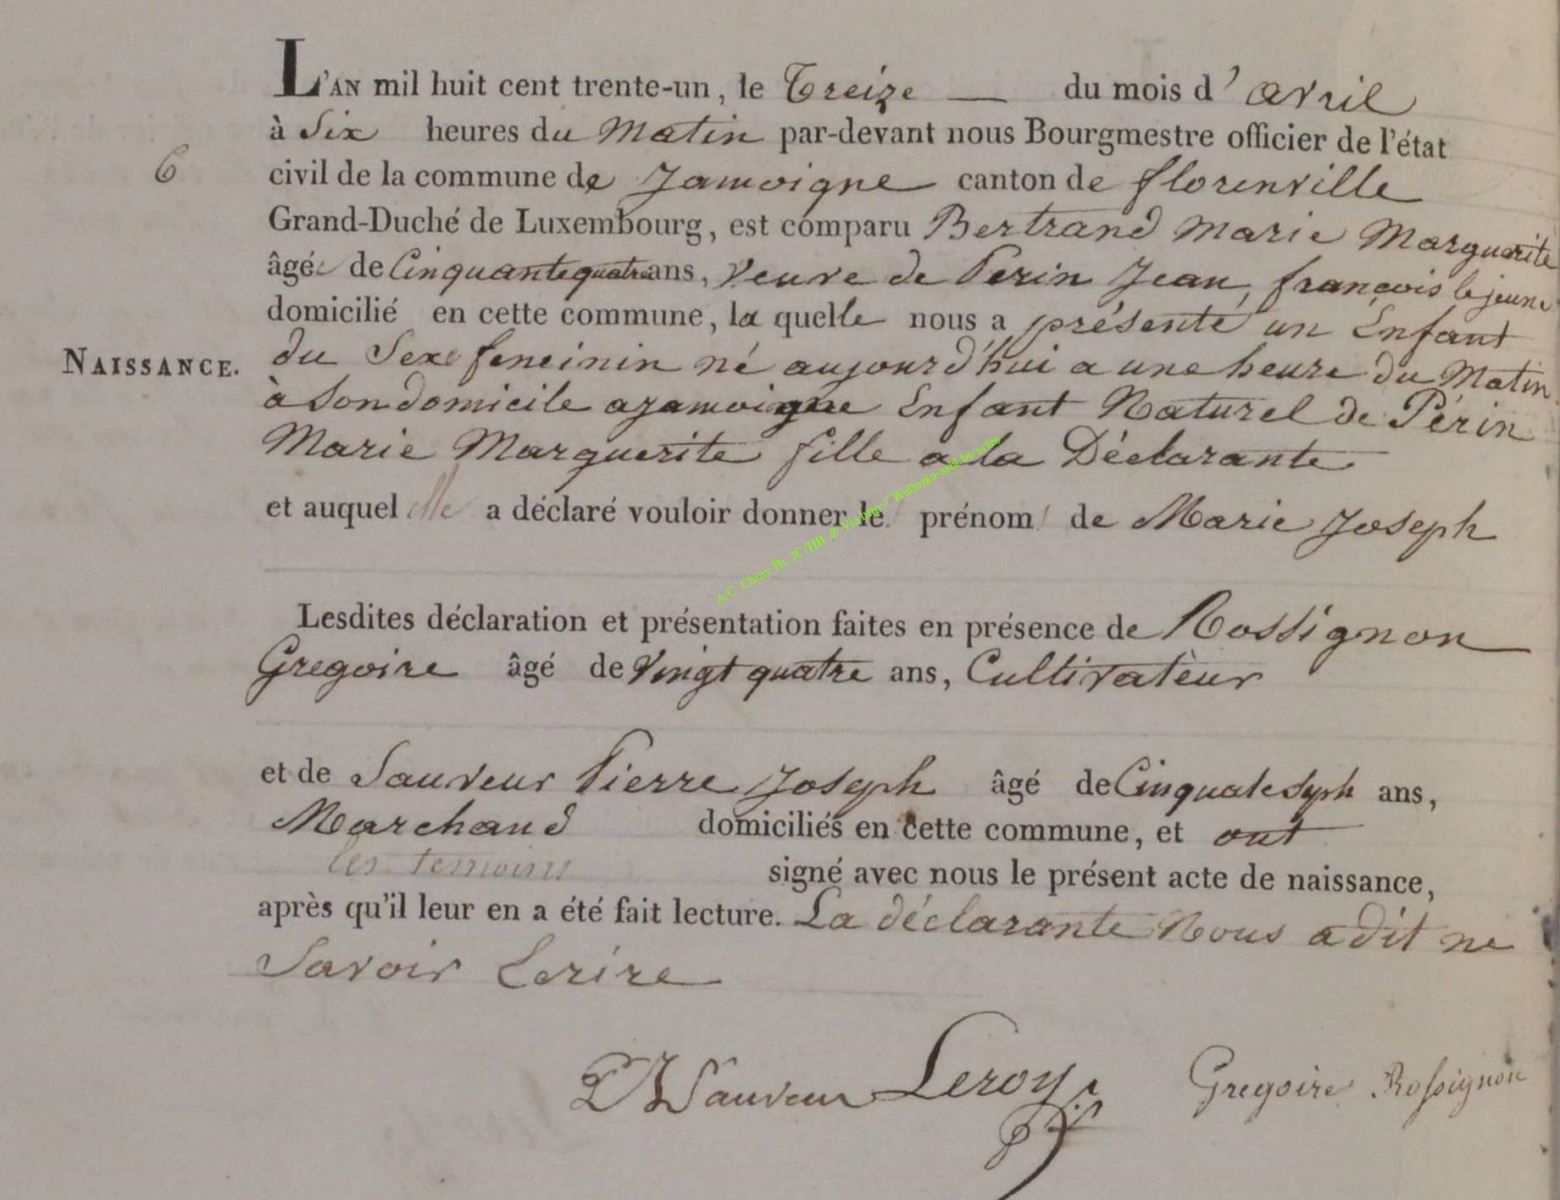 L'AN mil huit cent trente-un, le Treize — du mois d'avril
à Six heures du Matin par-devant nous Bourgmestre officier de l'état
6
civil de la commune de Jamoigne canton de florenville
Grand-Duché de Luxembourg, est comparu Bertrand Marie Marguerite
âgée de Cinquantequatre ans, Veuve de Perin Jean, françois le jeune
domicilié en cette commune, la quelle nous a présenté un Enfant
NAISSANCE.
du Sexe feneinin né aujourd'hui a une heure du Matin
à Son domicile a Jamoigne Enfant Naturel de Périn
Marie Marguerite fille a la Déclarante
et auquel elle a déclaré vouloir donner le prénom de Marie Joseph
Lesdites déclaration et présentation faites en présence de Rossignon
Gregoire âgé de Vingt quatre ans, Cultivateur
et de Sauveur Pierre Joseph âgé de ans,
Marchand domiciliés en cette commune, et ont
les temoins signé avec nous le présent acte de naissance,
après qu'il leur en a été fait lecture. La déclarante Nous a dit ne
Savoir Ecrire
PJ Sauveur Leroy Gregoire Rossignon